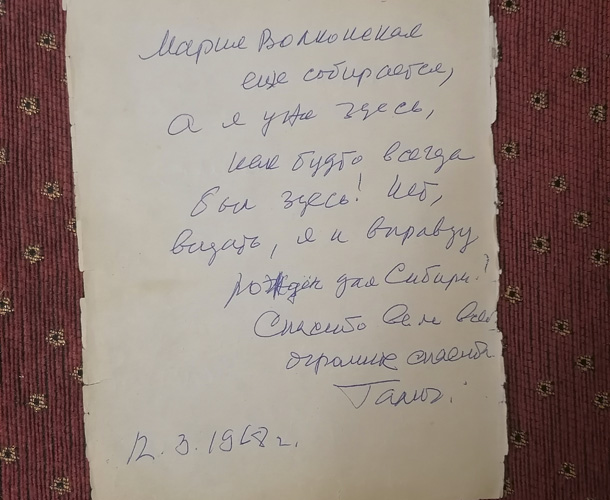 Мария Волконская
еще собирается,
а я уже здесь,
как будто всегда
был здесь! Нет,
видать, я и вправду
рождён для Сибири!
Спасибо Вам всем
огромное спасибо
Галич.
12.3.1968 г.